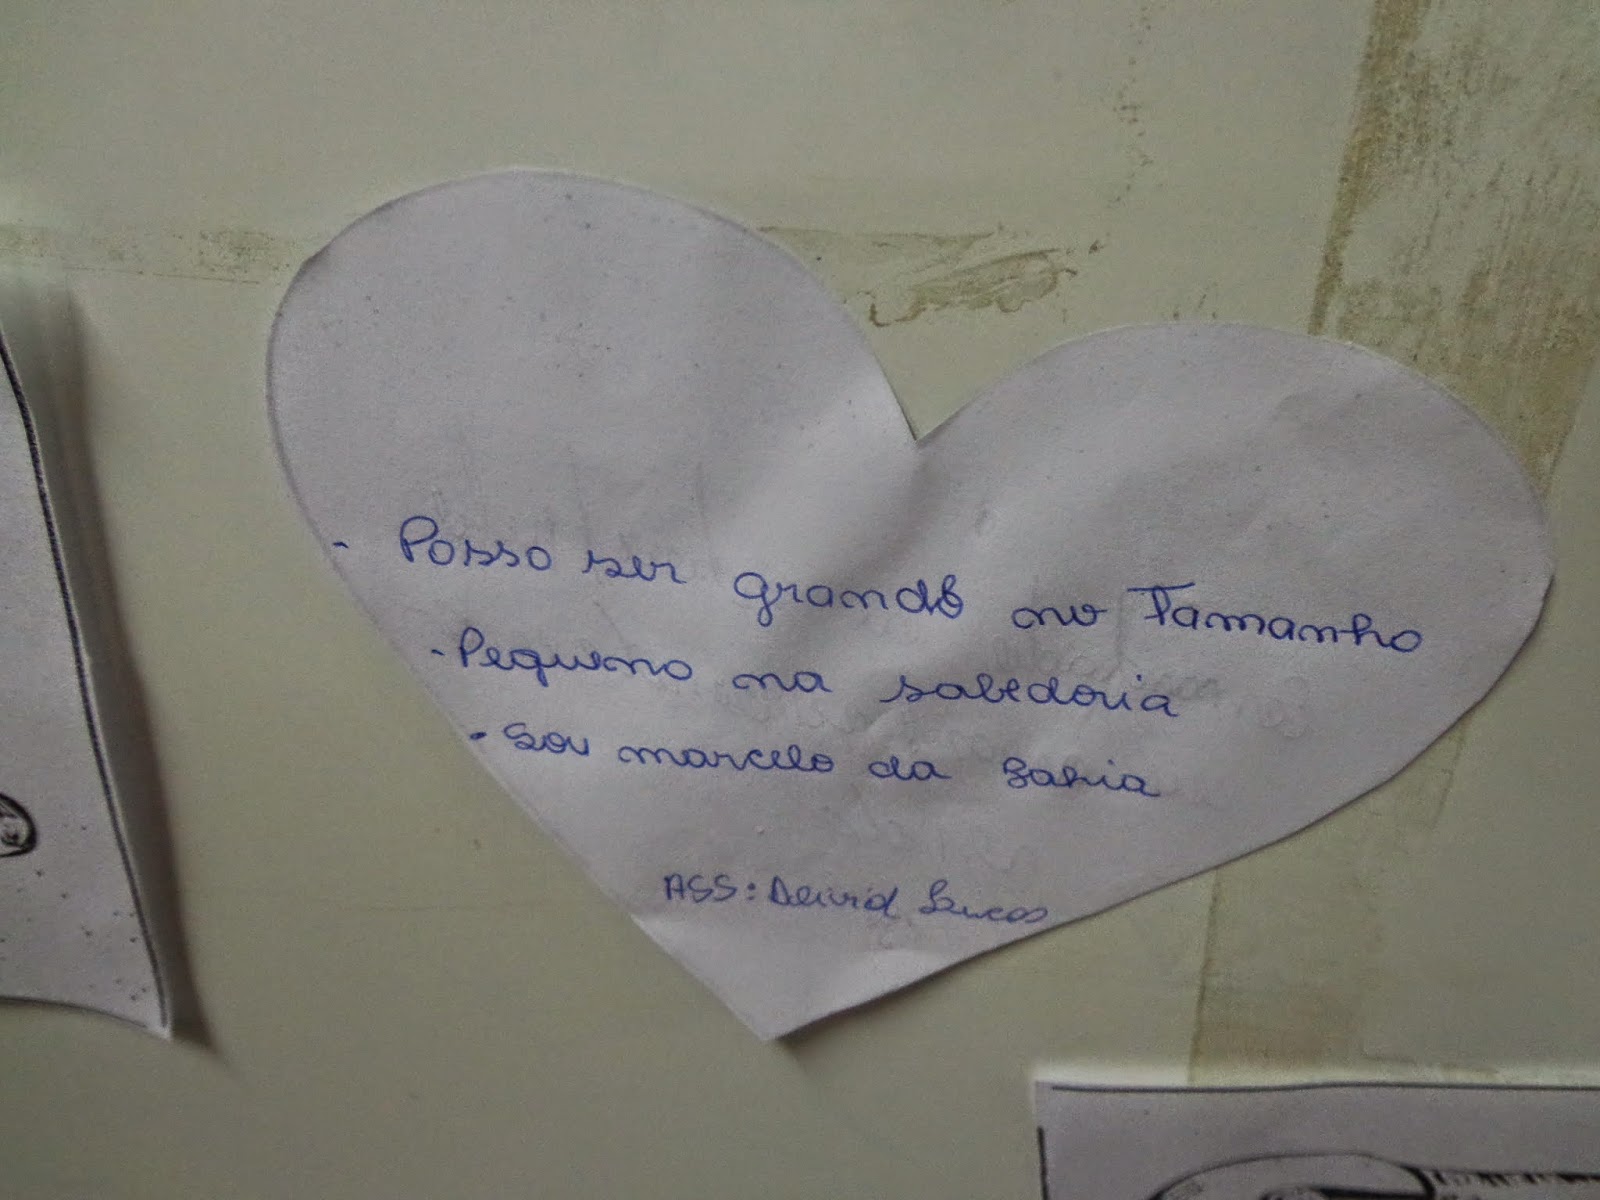 - Posso ser grande no Tamanho
- Pequeno na sabedoria
- sou marcelo da Bahia
ASS: Deivid Lucas